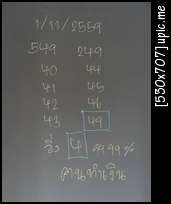 1/11/2559
549 249
40 44
41 45
42 46
43 49
วิ่ง 4 99.99%
คนทำเงิน
[530x707] upic.me